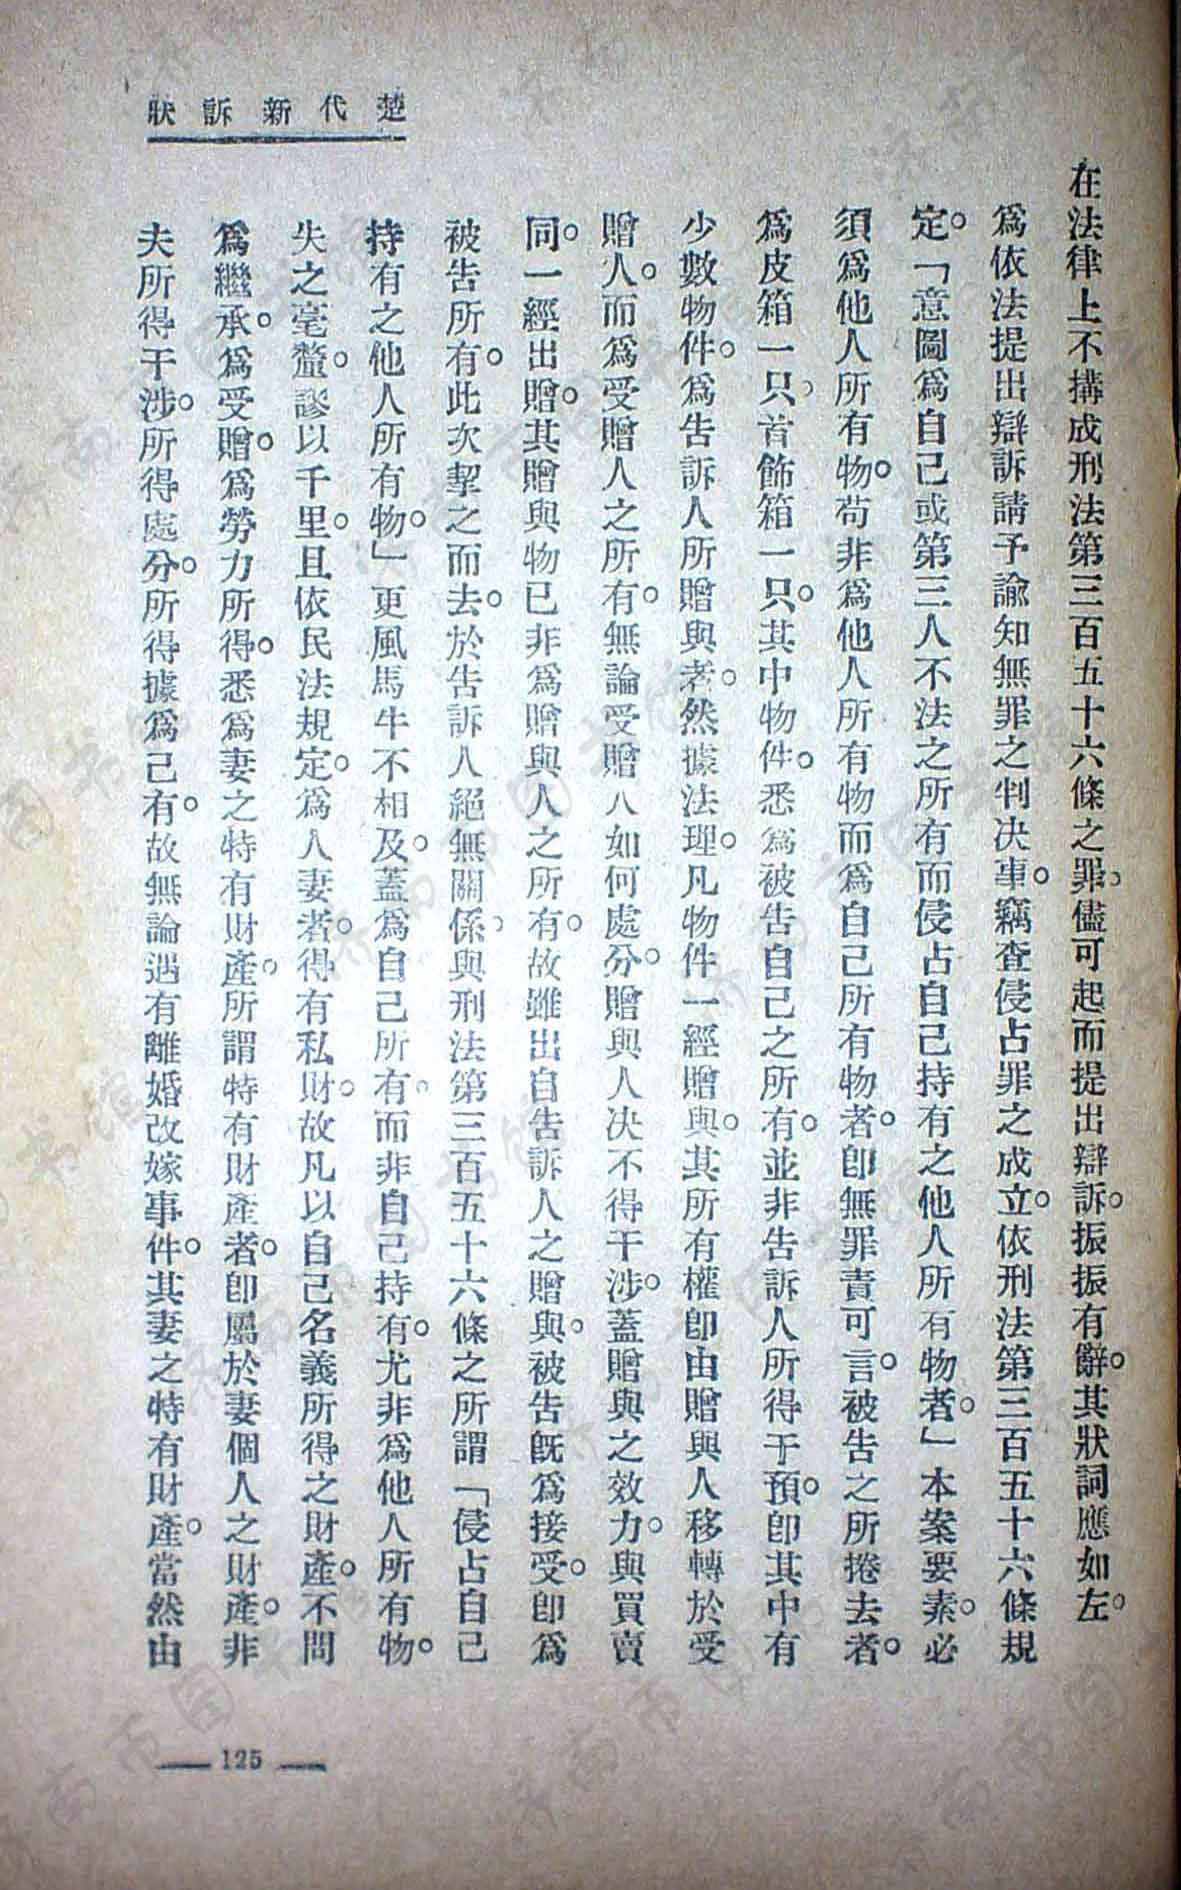 楚代新訴狀
在法律上不搆成刑法第三百五十六條之罪。儘可起而提出辯訴。振振有辭。其狀詞應如左。
爲依法提出辯訴請予諭知無罪之判决事。竊查侵占罪之成立。依刑法第三百五十六條規
定。「意圖爲自己或第三人不法之所有而侵占自己持有之他人所有物者。」本案要素。必
須爲他人所有物。苟非爲他人所有物而爲自己所有物者。卽無罪責可言。被告之所捲去者。
爲皮箱一只。首飾箱一只。其中物件。悉爲被告自己之所有。並非告訴人所得干預。卽其中有
少數物件。爲告訴人所贈與者。然據法理。凡物件一經贈與。其所有權卽由贈與人移轉於受
贈人。而爲受贈人之所有。無論受贈人如何處分。贈與人决不得干涉。蓋贈與之效力。與買賣
同。一經出贈。其贈與物已非爲贈與人之所有。故雖出自告訴人之贈與。被告旣爲接受。卽爲
被告所有。此次挈之而去。於告訴人絕無關係。與刑法第三百五十六條之所謂「侵占自己
持有之他人所有物。」更風馬牛不相及。蓋爲自己所有。而非自己持有。尤非爲他人所有物。
失之毫釐。謬以千里。且依民法規定。爲人妻者。得有私財。故凡以自己名義所得之財產。不問
爲繼承。爲受贈。爲勞力所得。悉爲妻之特有財產。所謂特有財產者。卽屬於妻個人之財產。非
夫所得干涉。所得處分。所得據爲己有。故無論遇有離婚改嫁事件。其妻之特有財產。當然由
125